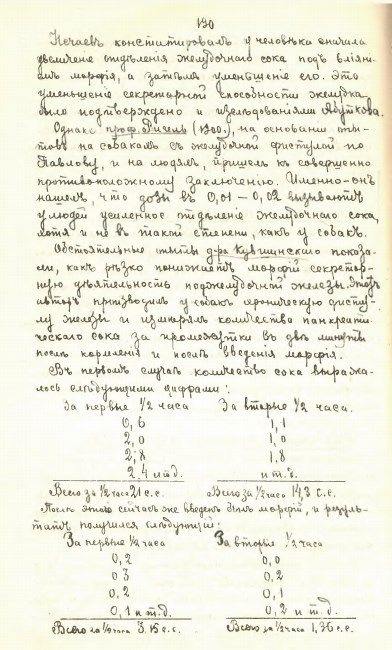 130
Нечаевъ констатировалъ у человѣка сначала
увеличеніе отдѣленія желудочнаго сока подъ влія-
емъ морфія, а затѣмъ уменьшеніе его. Это
уменьшеніе секреторной способности желудка
было подтверждено и изслѣдованіями Абуткова.
Однако проф. Бикель (1900г.), на основаніи опы-
товъ на собакахъ съ желудочной фистулой по
Павлову, и на людяхъ, пришелъ къ совершенно
противоположному заключенію. Именно-онъ
нашелъ, что дозы въ 0,01 – 0,02 вызываютъ
у людей усиленное отдѣленіе желудочнаго сока,
хотя и не въ такой степени, какъ у собакъ.
Обстоятельные опыты д-ра Кувшинскаго показа-
ли, какъ рѣзко понижаетъ морфій секретор-
ную дѣятельность поджелудочной железы. Этотъ
авторъ производилъ у собакъ хроническую фисту-
лу железы и измѣрялъ количества панкреати-
ческаго сока за промежутки въ двѣ минуты
послѣ кормленія и послѣ введенія морфія.
Въ первомъ случаѣ количество сока выража-
лось слѣдующими цифрами:
За первые 1/2 часа За вторые 1/2 часа.
0,6 1,1
2,0 1,0
2,8 1,8
2,4 и т.д. и т.д.
Всего за 1/2 часа 21 с.с. Всего за 1/2 часа 14,8 с.с.
Послѣ этого сейчасъ же введенъ былъ морфій, и резуль-
татъ получился слѣдующій:
За первые 1/2 часа За вторые 1/2 часа
0,2 0,0
0 3 0,2
0,2 0,1
0,1 и т.д. 0,2 и т.д.
Всего за 1/2 часа 3.15 с.с. Всего за 1/2 часа 1,36 с.с.